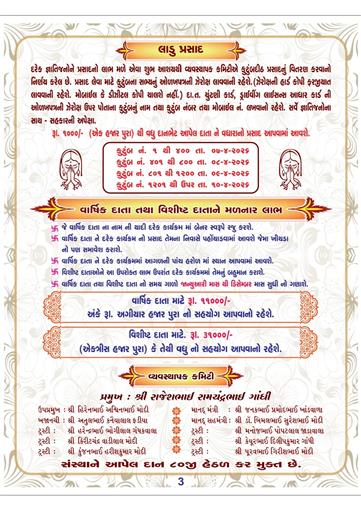 લાડુ પ્રસાદ
દરેક જ્ઞાતિજનોને પ્રસાદનો લાભ મળે એવા શુભ આશયથી વ્યવસ્થાપક કમિટીએ કુટુંબદીઠ પ્રસાદનું વિતરણ કરવાનો
નિર્ણય કરેલ છે. પ્રસાદ લેવા માટે કુટુંબના સભ્યનું ઓળખપત્રની ઝેરોક્ષ લાવવાની રહેશે. (ઝેરોક્ષની હાર્ડ કોપી ફરજીયાત
લાવવાની રહેશે. મોબાઈલ કે ડીઝીટલ કોપી ચાલશે નહીં.) દા.ત. ચૂંટણી કાર્ડ, ડ્રાઈવીંગ લાઈસન્સ આધાર કાર્ડ ની
ઓળખપત્રની ઝેરોક્ષ ઉપર પોતાના કુટુંબનું નામ તથા કુટુંબ નંબર તથા મોબાઈલ નં. લખવાનો રહેશે. સર્વે જ્ઞાતિજનોના
સાથ - સહકારની અપેક્ષા.
રૂા. ૧૦૦૦/- (એક હજાર પુરા) થી વધુ દાનભેટ આપેલ દાતા ને વધારાનો પ્રસાદ આપવામાં આવશે.
કુટુંબ નં. ૧ થી ૪૦૦ તા. ૦૭-૪-૨૦૨૬
કુટુંબ નં. ૪૦૧ થી ૮૦૦ તા. ૦૮-૪-૨૦૨૬
કુટુંબ નં. ૮૦૧ થી ૧૨૦૦ તા. ૦૯-૪-૨૦૨૬
કુટુંબ નં. ૧૨૦૧ થી ઉપર તા. ૧૦-૪-૨૦૨૬
વાર્ષિક દાતા તથા વિશીષ્ટ દાતાને મળનાર લાભ
卐 જે વાર્ષિક દાતા ના નામ ની યાદી દરેક કાર્યક્રમ માં બેનર સ્વરૂપે રજુ કરશે.
卐 વાર્ષિક દાતા ને દરેક કાર્યક્રમ નો પ્રસાદ તેમના નિવાસે પહોંચાડવામાં આવશે જેમા ખોયડા
નો પણ સમાવેશ કરાશે.
卐 વાર્ષિક દાતા ને દરેક કાર્યક્રમમાં આગળની પાંચ હરોળ માં સ્થાન આપવામાં આવશે.
卐 વિશીષ્ટ દાતાઓને આ ઉપરોક્ત લાભ ઉપરાંત દરેક કાર્યક્રમમાં તેમનું બહુમાન કરાશે.
卐 વાર્ષિક દાતા તથા વિશીષ્ટ દાતા નો સમય ગાળો જાન્યુઆરી માસ થી ડિસેમ્બર માસ સુધી નો ગણાશે.
વાર્ષિક દાતા માટે રૂા. ૧૧૦૦૦/-
અંકે રૂા. અગીયાર હજાર પુરા નો સહયોગ આપવાનો રહેશે.
વિશીષ્ટ દાતા માટે. રૂા. ૩૧૦૦૦/-
(એકત્રીસ હજાર પુરા) કે તેથી વધુ નો સહયોગ આપવાનો રહેશે.
વ્યવસ્થાપક કમિટી
પ્રમુખ : શ્રી રાજેશભાઈ રામચંદ્રભાઈ ગાંધી
ઉપપ્રમુખ : શ્રી હિરેનભાઈ અશ્વિનભાઈ મોદી માનદ્ મંત્રી : શ્રી જનકભાઈ પ્રમોદભાઈ ખાંડવાળા
ખજાનચી : શ્રી અતુલભાઈ કનૈયાલાલ કડીવા માનદ્ સહમંત્રી : શ્રી ડૉ. બિમલભાઈ સુરેશભાઈ મોદી
ટ્રસ્ટી : શ્રી હરેન્દ્રભાઈ ભોગીલાલ ચંપકવાલા ટ્રસ્ટી : શ્રી મનોજભાઈ પોપટલાલ જાડાવાલા
ટ્રસ્ટી : શ્રી કિરીટચંદ્ર વાડીલાલ મોદી ટ્રસ્ટી : શ્રી કેયુરભાઈ દિલીપકુમાર ગાંધી
ટ્રસ્ટી : શ્રી કુંજનભાઈ હરીશકુમાર મોદી ટ્રસ્ટી : શ્રી પુરવભાઈ ગિરીશભાઈ મોદી
સંસ્થાને આપેલ દાન ૮૦જી હેઠળ કર મુક્ત છે.
3